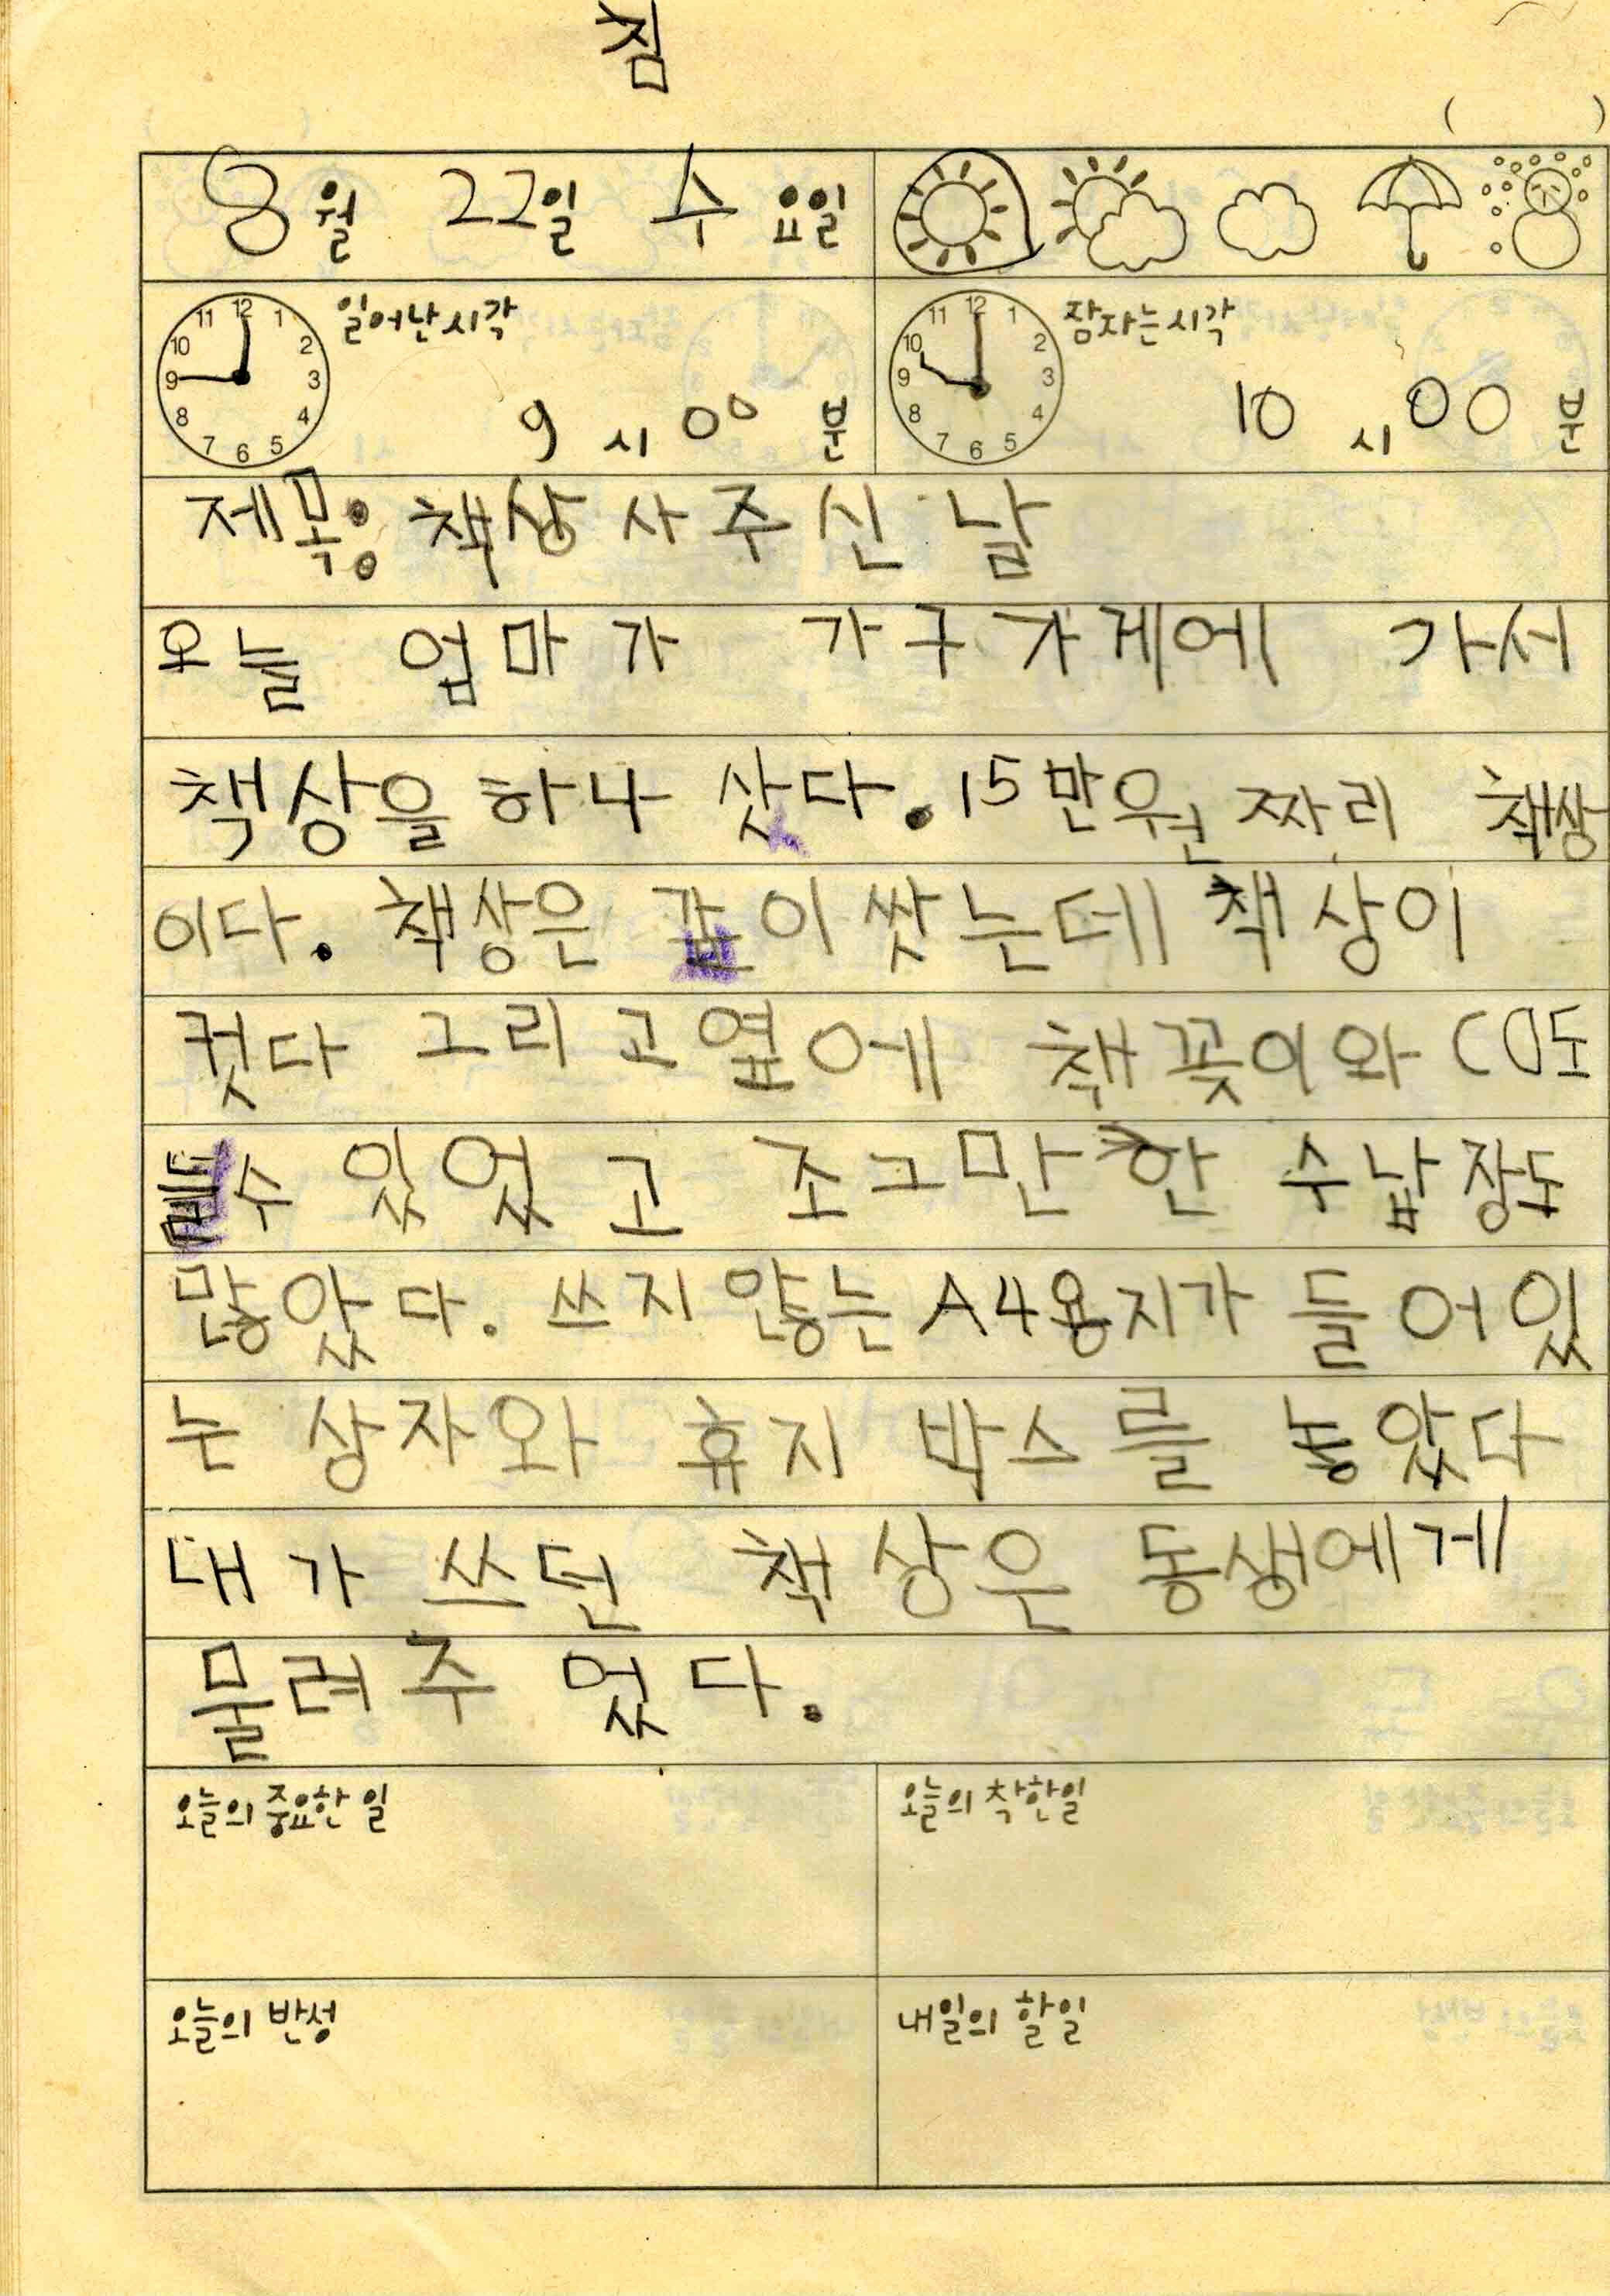 점
( )
8월 22일 수요일
12 1 2 3 4 5 6 7 8 9 10 11 일어난시각 9시 00분
12 1 2 3 4 5 6 7 8 9 10 11 잠자는시각 10시 00분
제목: 책상 사주신 날
오늘 엄마가 가구가게에 가서
책상을 하나 샀다. 15만원 짜리 책상
이다. 책상은 값이 쌋는데 책상이
컷다 그리고 옆에 책꽂이와 CD도
들수 있었고 조그만한 수납장도
많았다. 쓰지 않는 A4용지가 들어있
는 상자와 휴지 박스를 놓았다
내가 쓰던 책상은 동생에게
물려주었다.
오늘의 중요한 일
오늘의 착한일
오늘의 반성
내일의 할일